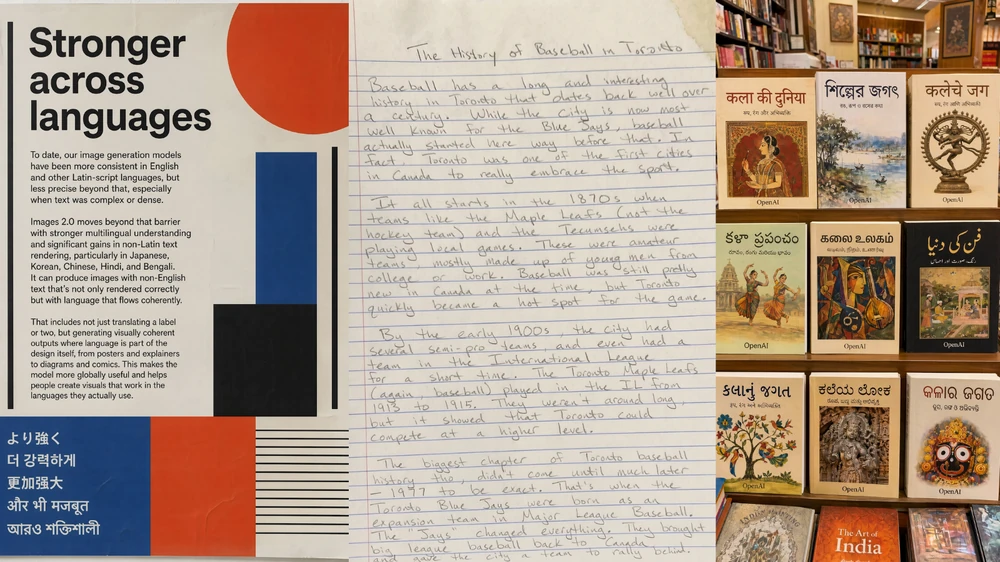 Stronger
across
languages
To date, our image generation models
have been more consistent in English
and other Latin-script languages, but
less precise beyond that, especially
when text was complex or dense.
Images 2.0 moves beyond that barrier
with stronger multilingual understanding
and significant gains in non-Latin text
rendering, particularly in Japanese,
Korean, Chinese, Hindi, and Bengali.
It can produce images with non-English
text that's not only rendered correctly
but with language that flows coherently.
That includes not just translating a label
or two, but generating visually coherent
outputs where language is part of the
design itself, from posters and explainers
to diagrams and comics. This makes the
model more globally useful and helps
people create visuals that work in the
languages they actually use.
より強く
더 강력하게
更加强大
और भी मजबूत
আরও শক্তিশালী
The History of Baseball in Toronto
Baseball has a long and interesting
history in Toronto that dates back well over
a century. While the city is now most
well known for the Blue Jays, baseball
actually started here way before that. In
fact, Toronto was one of the first cities
in Canada to really embrace the sport.
It all starts in the 1870s when
teams like the Maple Leafs (not the
hockey team) and the Tecumsehs were
playing local games. These were amateur
teams mostly made up of young men from
college or work. Baseball was still pretty
new in Canada at the time, but Toronto
quickly became a hot spot for the game.
By the early 1900s, the city had
several semi-pro teams and even had a
team in the International League
for a short time. The Toronto Maple Leafs
(again, baseball) played in the IL from
1913 to 1915. They weren't around long,
but it showed that Toronto could
compete at a higher level.
The biggest chapter of Toronto baseball
history tho, didn't come until much later
— 1977 to be exact. That's when the
Toronto Blue Jays were born as an
expansion team in Major League Baseball.
The "Jays" changed everything. They brought
big league baseball back to Canada
and gave the city a team to rally behind.
कला की दुनिया
रूप, रंग और अभिव्यक्ति
OpenAI
শিল্পের জগৎ
OpenAI
कलेचे जग
रूप, रंग आणि अभिव्यक्ती
OpenAI
కళా ప్రపంచం
OpenAI
கலை உலகம்
OpenAI
فن کی دنیا
رنگ، صورت اور احساس
OpenAI
કલાનું જગત
OpenAI
ಕಲೆಯ ಲೋಕ
OpenAI
OpenAI
The Art of
India